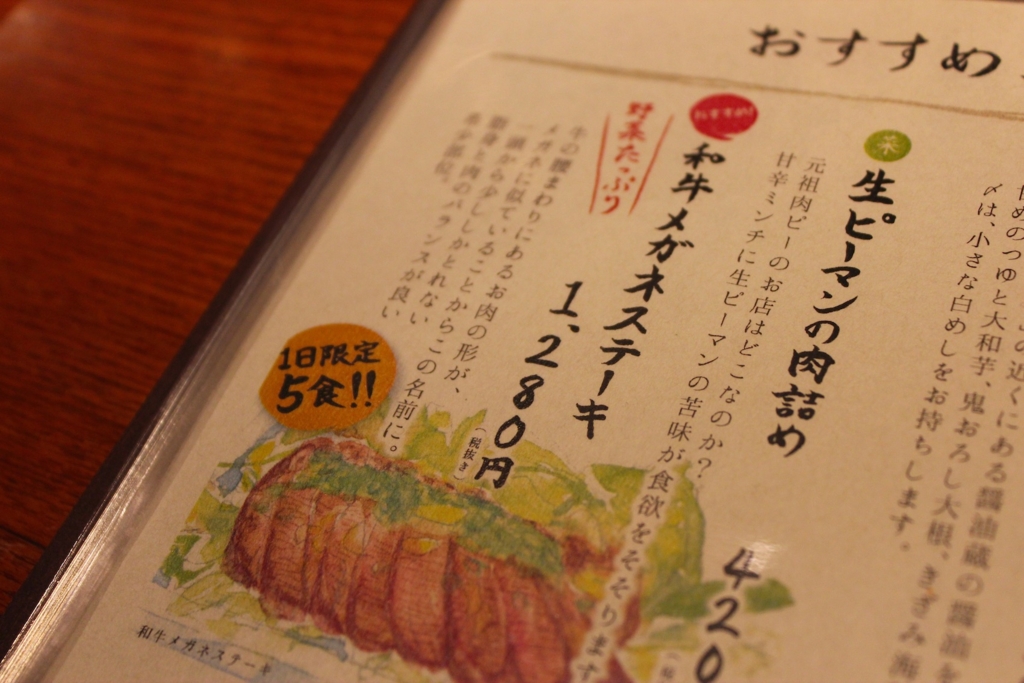 おすすめ
めのつゆと大和芋、鬼おろし大根、きざみ海
〆は、小さな白めしをお持ちします。
の近くにある醤油蔵の醤油を
菜
生ピーマンの肉詰め
元祖肉ピーのお店はどこなのか?
甘辛ミンチに生ピーマンの苦味が食欲をそそります
420
おすすめ!
和牛メガネステーキ
1,280円
(税抜き)
野菜たっぷり
牛の腰まわりにあるお肉の形が、
メガネに似ていることからこの名前に。
一頭から少ししかとれない
脂身と肉のバランスが良い
希少部位。
1日限定
5食!!
和牛メガネステーキ